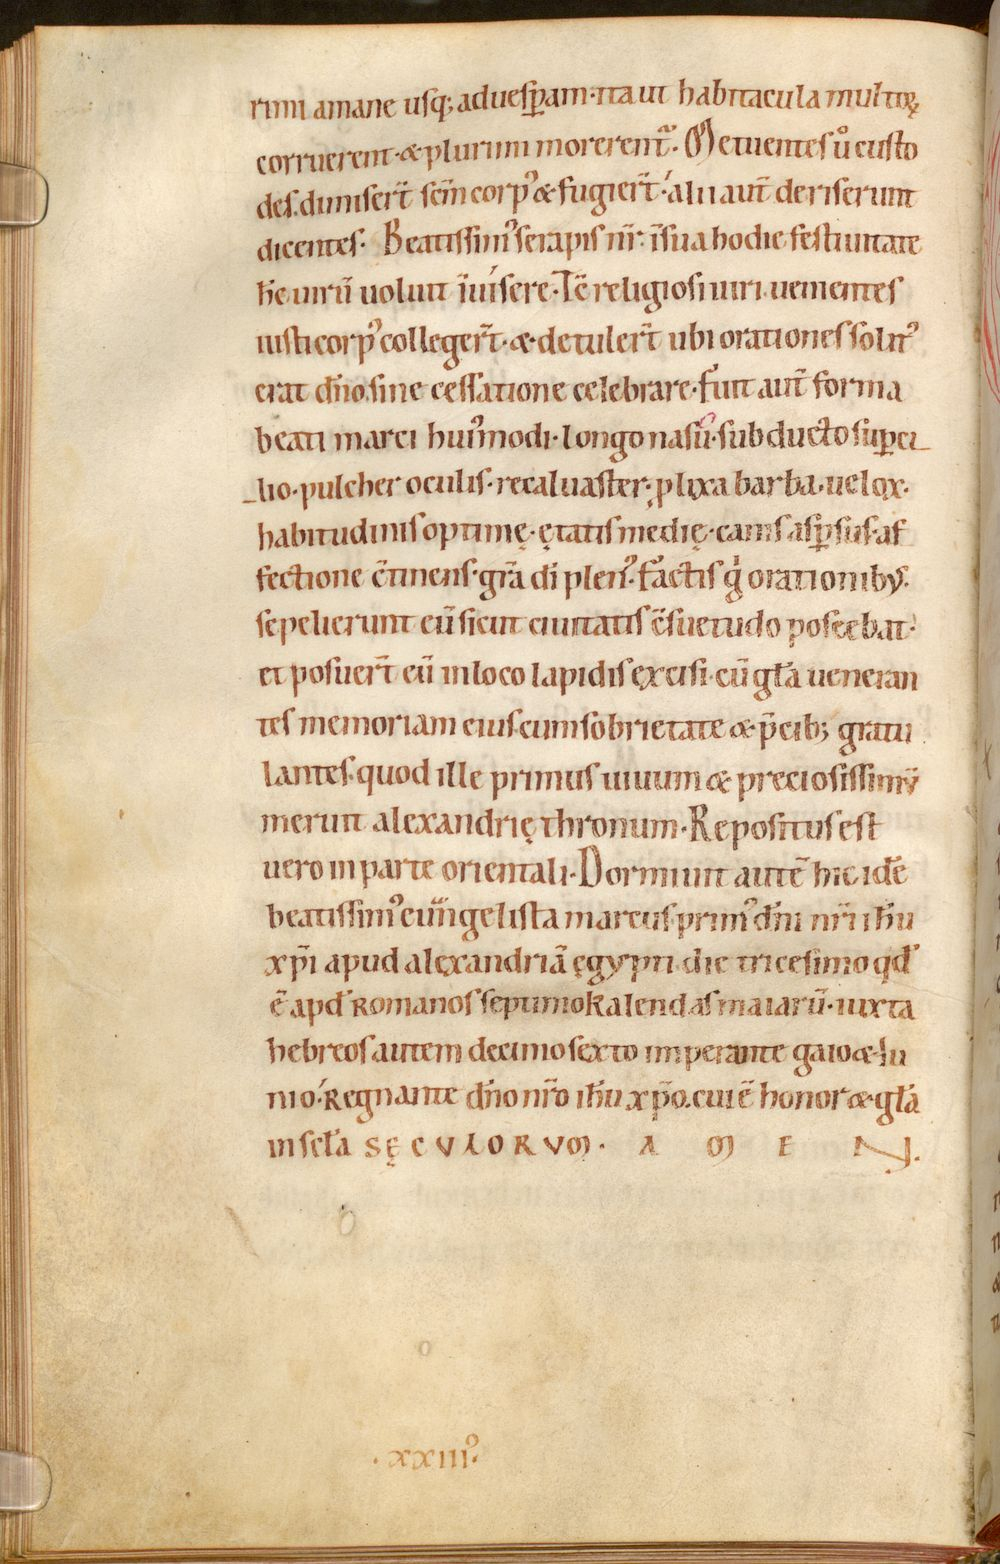 rimi a mane usq; ad uesp̄am· ita ut habitacula multoꝝ
corruerent· & plurimi morerent᷑· Metuentes ů custo
des· dimiser̄t sc̄m corp᾿ & fugier̄t· alii aut̄ deriserunt
dicentes· Beatissim᾿ serapis nr̄· ī sua hodie festiuitate
hc̄ uirū uoluit īuisere· Tc̄ religiosi uiri uenientes
iusti corp᾿ colleger̄t· & detuler̄t ubi orationes solit᾿
erat dn̄o sine cessatione celebrare· fuit aut̄ forma
beati marci hui᾿modi· longo nasu· subducto sup̄ci
lio· pulcher oculis· recaluaster· ꝓlixa barba· uelox·
habitudinis optimę· ętatis medię· canis asp̄sus· af
fectione c̄tinens· gr̄a dī plen᾿· factis g̊ orationiby·
sepelierunt eū sicut ciuitatis c̄suetudo poscebat·
et posuer̄t eū in loco lapidis excisi· cū gl̄a ueneran
tes memoriam eius cum sobrietate & p̄cib; gratu
lantes· quod ille primus uiuum & preciosissimū
meruit alexandrię thronum· Repositus est
uero in parte orientali· Dormiuit autē hic idē
beatissim᾿ euu̅ngelista marcus prim᾿ dn̄i nr̄i ih̄u
xp̄i apud alexandriā ęgypti die tricesimo qd̄
ē apd̄ Romanos septimo kalendas maiarū· iuxta
hebreos autem decimo sexto imperante gaio & iu
nio· Regnante dn̄o nr̄o ih̄u xp̄o· cui ē honor & gl̄a
in scl̄a SĘCVLORVM· A M E N·
· xxiii᾿·